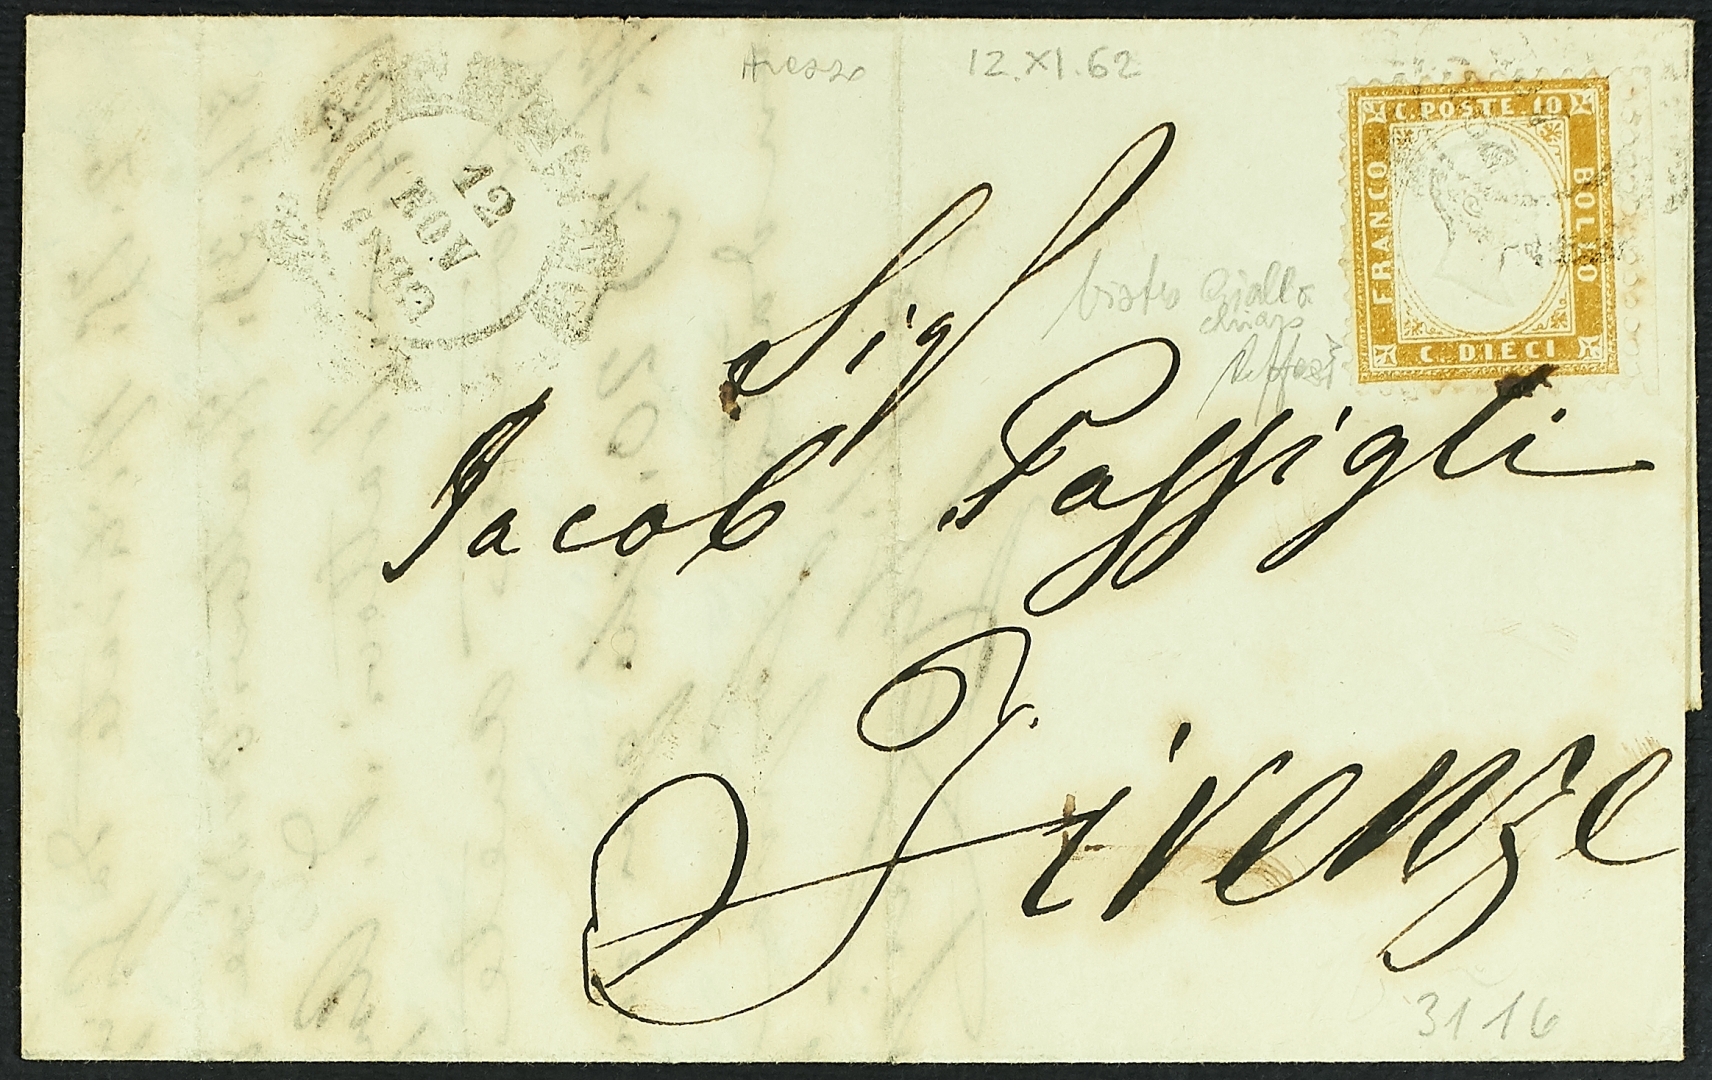 Arezzo 12.XI.62
12
NOV
C. POSTE 10
FRANCO
BOLLO
C. DIECI
bistro giallo
chiaro
Sig.
Jacob Passigli
Firenze
3116